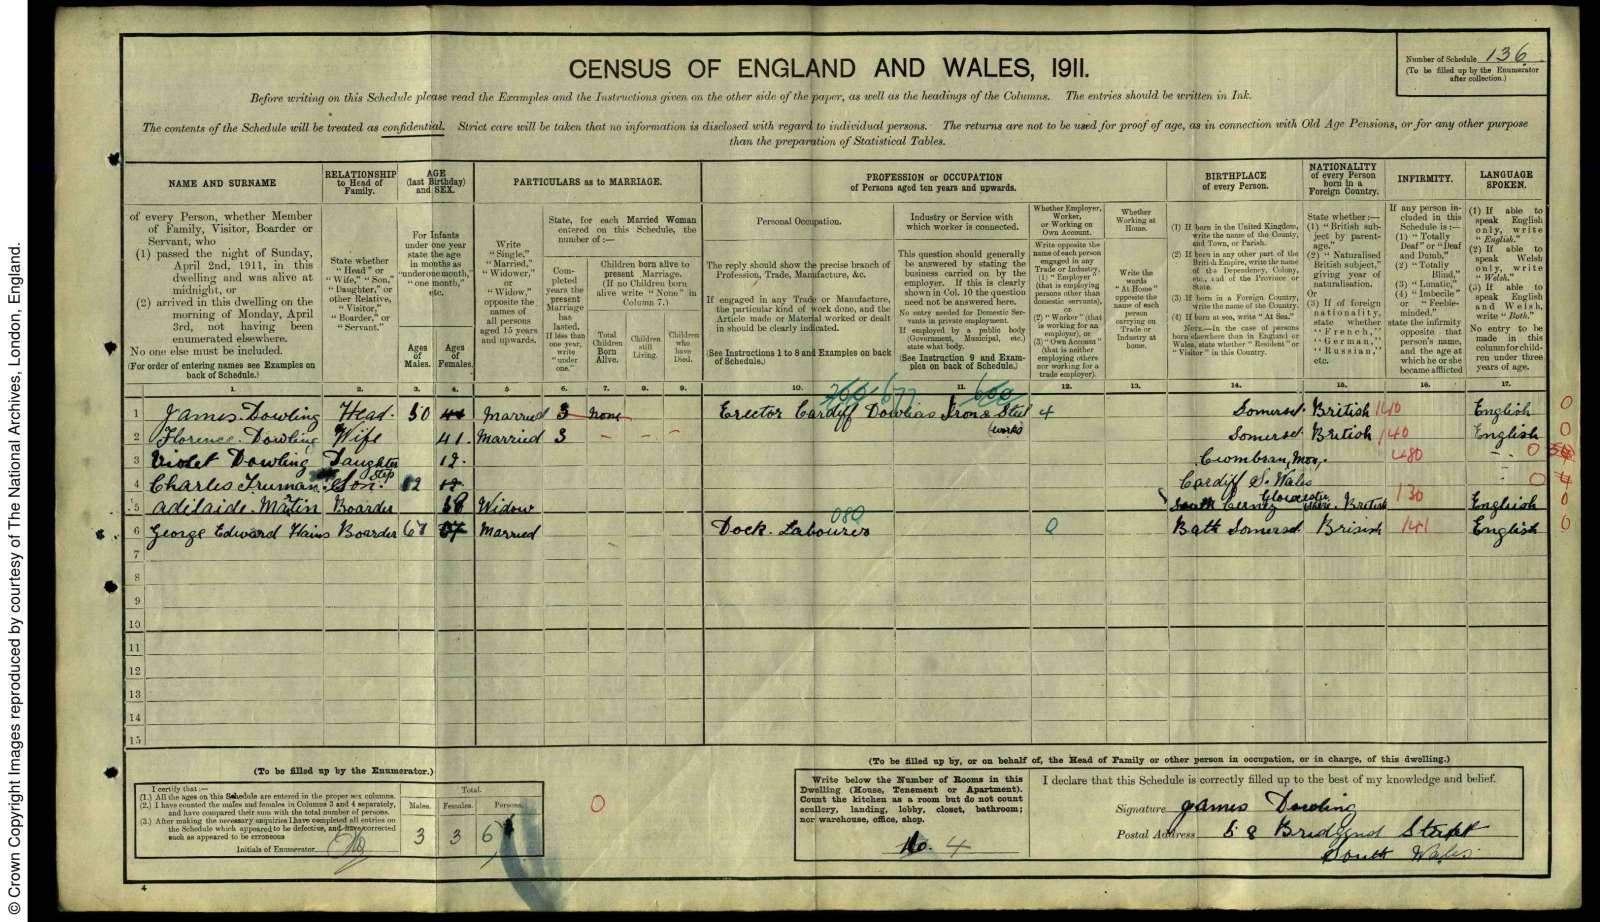 © Crown Copyright Images reproduced by courtesy of The National Archives, London, England.
CENSUS OF ENGLAND AND WALES, 1911.
Number of Schedule 136
(To be filled up by the Enumerator
after collection.)
Before writing on this Schedule please read the Examples and the Instructions given on the other side of the paper, as well as the headings of the Columns. The entries should be written in Ink.
The contents of the Schedule will be treated as confidential. Strict care will be taken that no information is disclosed with regard to individual persons. The returns are not to be used for proof of age, as in connection with Old Age Pensions, or for any other purpose
than the preparation of Statistical Tables.
NAME AND SURNAME
of every Person, whether Member
of Family, Visitor, Boarder or
Servant, who
(1) passed the night of Sunday,
April 2nd, 1911, in this
dwelling and was alive at
midnight, or
(2) arrived in this dwelling on the
morning of Monday, April
3rd, not having been
enumerated elsewhere.
No one else must be included.
(For order of entering names see Examples on
back of Schedule.)
RELATIONSHIP
to Head of
Family.
State whether
"Head" or
"Wife," "Son,"
"Daughter," or
other Relative,
"Visitor,"
"Boarder," or
"Servant."
AGE
(last Birthday)
and SEX.
For Infants
under one year
state the age
in months as
"under one month,"
"one month,"
etc.
Ages
of
Males.
Ages
of
Females.
PARTICULARS as to MARRIAGE.
Write
"Single,"
"Married,"
"Widower,"
or
"Widow,"
opposite the
names of
all persons
aged 15 years
and upwards.
State, for each Married Woman
entered on this Schedule, the
number of :—
Completed
years the
present
Marriage
has
lasted.
If less than
one year,
write
"under
one."
Children born alive to
present Marriage.
(If no Children born
alive write "None" in
Column 7.)
Total
Children
Born
Alive.
Children
still
Living.
Children
who
have
Died.
PROFESSION or OCCUPATION
of Persons aged ten years and upwards.
Personal Occupation.
The reply should show the precise branch of
Profession, Trade, Manufacture, &c.
If engaged in any Trade or Manufacture,
the particular kind of work done, and the
Article made or Material worked or dealt
in should be clearly indicated.
(See Instructions 1 to 8 and Examples on back
of Schedule.)
Industry or Service with
which worker is connected.
This question should generally
be answered by stating the
business carried on by the
employer. If this is clearly
shown in Col. 10 the question
need not be answered here.
No entry needed for Domestic Servants
in private employment.
If employed by a public body
(Government, Municipal, etc.)
state what body.
(See Instruction 9 and Examples
on back of Schedule.)
Whether Employer,
Worker,
or Working on
Own Account.
Write opposite the
name of each person
engaged in any
Trade or Industry,
(1) "Employer"
(that is employing
persons other than
domestic servants),
or
(2) "Worker" (that
is working for an
employer), or
(3) "Own Account"
(that is neither
employing others
nor working for a
trade employer).
Whether
Working at
Home.
Write the
words
"At Home"
opposite the
name of each
person
carrying on
Trade or
Industry at
home.
BIRTHPLACE
of every Person.
(1) If born in the United Kingdom,
write the name of the County,
and Town, or Parish.
(2) If born in any other part of the
British Empire, write the name
of the Dependency, Colony,
etc., and of the Province or
State.
(3) If born in a Foreign Country,
write the name of the Country.
(4) If born at sea, write "At Sea."
NOTE.—In the case of persons
born elsewhere than in England or
Wales, state whether "Resident" or
"Visitor" in this Country.
NATIONALITY
of every Person
born in a
Foreign Country.
State whether :—
(1) "British subject
by parentage."
(2) "Naturalised
British subject,"
giving year of
naturalisation.
Or
(3) If of foreign
nationality,
state whether
"French,"
"German,"
"Russian,"
etc.
INFIRMITY.
If any person included
in this
Schedule is :—
(1) "Totally
Deaf" or "Deaf
and Dumb,"
(2) "Totally
Blind,"
(3) "Lunatic,"
(4) "Imbecile"
or "Feeble-
minded,"
state the infirmity
opposite that
person's name,
and the age at
which he or she
became afflicted
LANGUAGE
SPOKEN.
(1) If able to
speak English
only, write
"English."
(2) If able to
speak Welsh
only, write
"Welsh."
(3) If able to
speak English
and Welsh,
write "Both."
No entry to be
made in this
column for children
under three
years of age.
1. 2. 3. 4. 5 6. 7. 8. 9. 10. 11. 12. 13. 14. 15. 16. 17.
1 James Dowling Head. 50 Married 3 None Erector Cardiff Dowlias Iron & Steel 4 Somerset British 140 English 0
(works)
2 Florence Dowling Wife 41. Married 3 – – – Somerset British 140 English 0
3 Violet Dowling Daughter 12. Cwmbran, Mon, 480 0
4 Charles Truman Step Son 12 Cardiff S. Wales 0 4
5 Adelaide Martin Boarder 58 Widow South Cerney Gloucestershire British 130 English 0
6 George Edward Hains Boarder 67 Married Dock Labourer 080 0 Bath Somerset Brisish 141 English 0
7
8
9
10
11
12
13
14
15
(To be filled up by the Enumerator.)
I certify that :—
(1.) All the ages on this Schedule are entered in the proper sex columns.
(2.) I have counted the males and females in Columns 3 and 4 separately,
and have compared their sum with the total number of persons.
(3.) After making the necessary enquiries I have completed all entries on
the Schedule which appeared to be defective, and have corrected
such as appeared to be erroneous
Initials of Enumerator
Total.
Males. Females. Persons.
3 3 6
0
(To be filled up by, or on behalf of, the Head of Family or other person in occupation, or in charge, of this dwelling.)
Write below the Number of Rooms in this
Dwelling (House, Tenement or Apartment).
Count the kitchen as a room but do not count
scullery, landing, lobby, closet, bathroom;
nor warehouse, office, shop.
No. 4
I declare that this Schedule is correctly filled up to the best of my knowledge and belief.
Signature James Dowling
Postal Address 58 Bridgend Street
South Wales
4